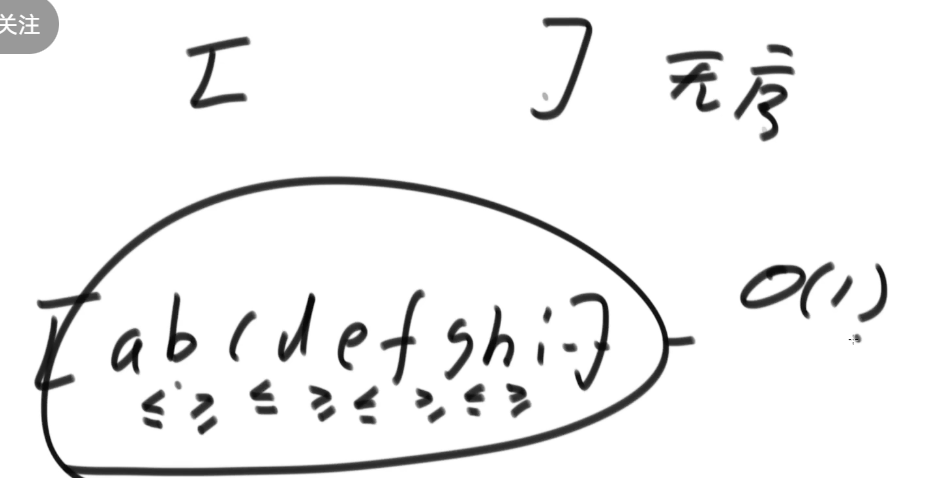 关注
[ ] 无序
[ a b c d e f g h i - ] - O(1)
≤ ≥ ≤ ≥ ≤ ≥ ≤ ≥